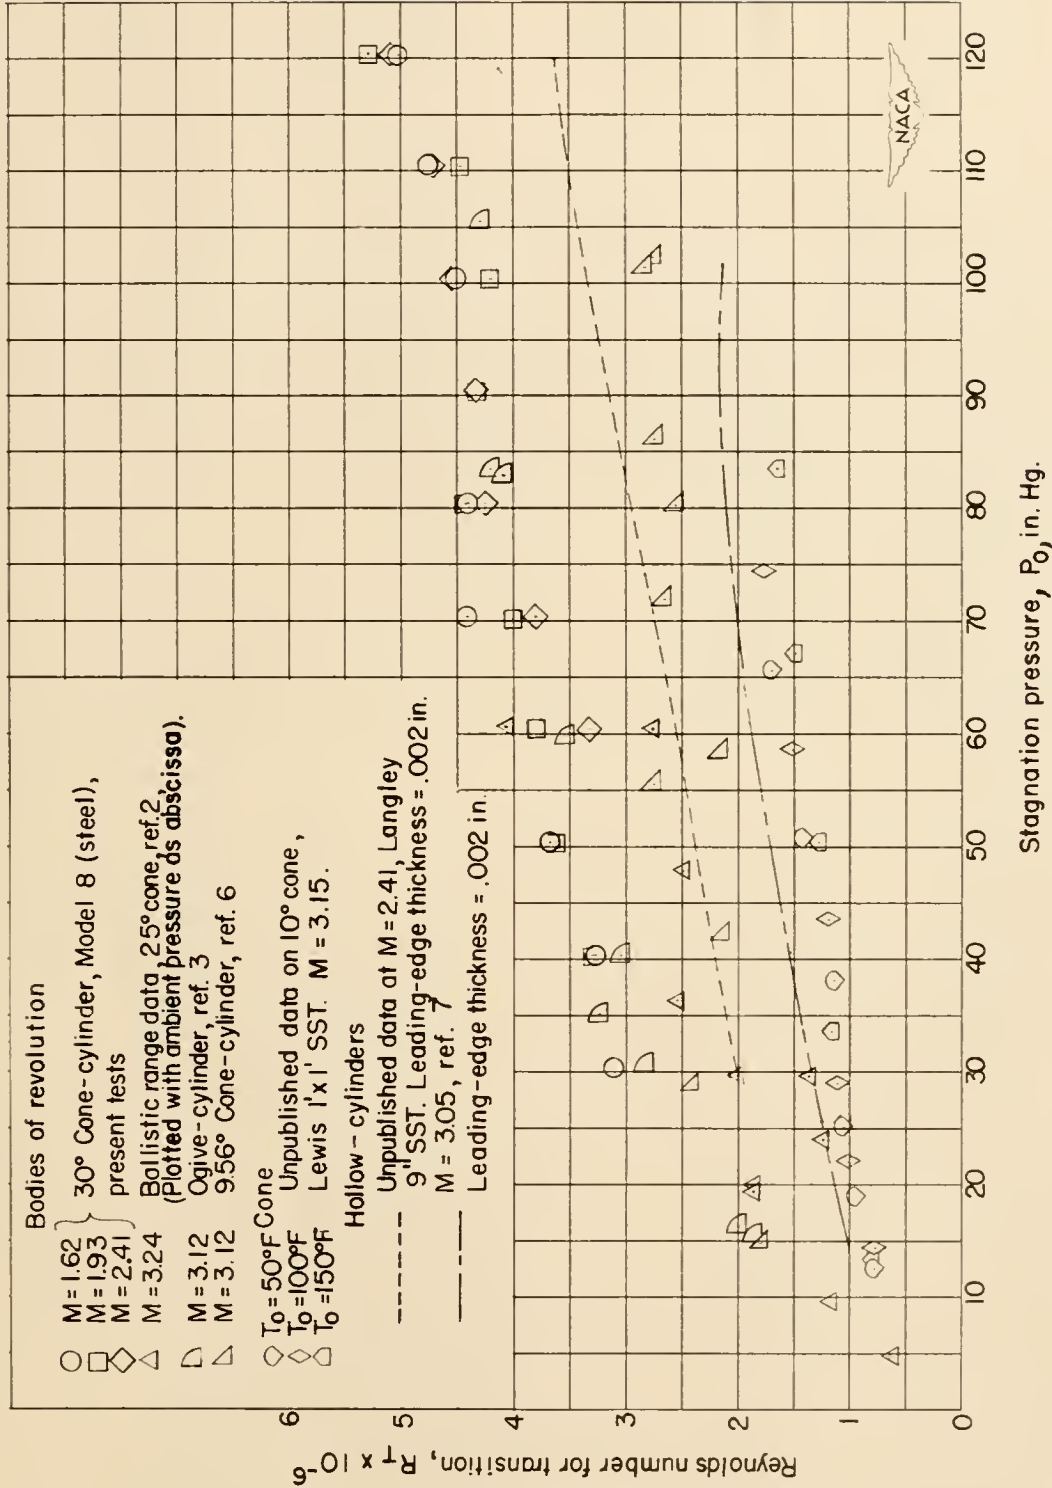 Bodies of revolution
M = 1.62
M = 1.93
M = 2.41
30° Cone-cylinder, Model 8 (steel),
present tests
M = 3.24 Ballistic range data, 25° cone, ref. 2,
(Plotted with ambient pressure as abscissa).
M = 3.12 Ogive-cylinder, ref. 3
M = 3.12 9.56° Cone-cylinder, ref. 6
Cone
T0 = 50°F
T0 = 100°F
T0 = 150°F
Unpublished data on 10° cone,
Lewis 1' x 1' SST. M = 3.15.
Hollow-cylinders
Unpublished data at M = 2.41, Langley
9" SST. Leading-edge thickness = .002 in.
M = 3.05, ref. 7
Leading-edge thickness = .002 in.
Reynolds number for transition, RT x 10-6
6
5
4
3
2
1
0
10 20 30 40 50 60 70 80 90 100 110 120
Stagnation pressure, P0, in. Hg.
NACA